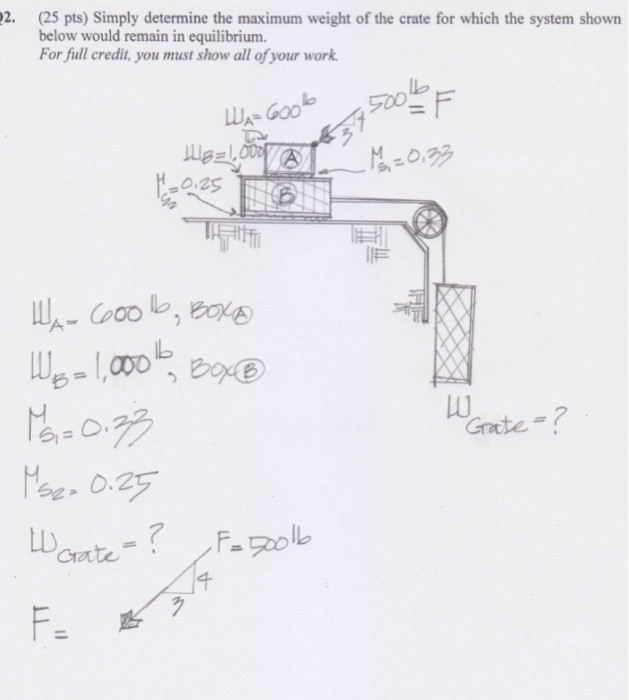 2. (25 pts) Simply determine the maximum weight of the crate for which the system shown
below would remain in equilibrium.
For full credit, you must show all of your work.
WA=600lb
500lb=F
4
3
WB=1,000
A
Ms1=0.33
Ms2=0.25
B
WA=600lb, BOX A
WB=1,000lb, BOX B
Ms1=0.33
W Crate=?
Ms2=0.25
W Crate=?
F=500lb
4
3
F=